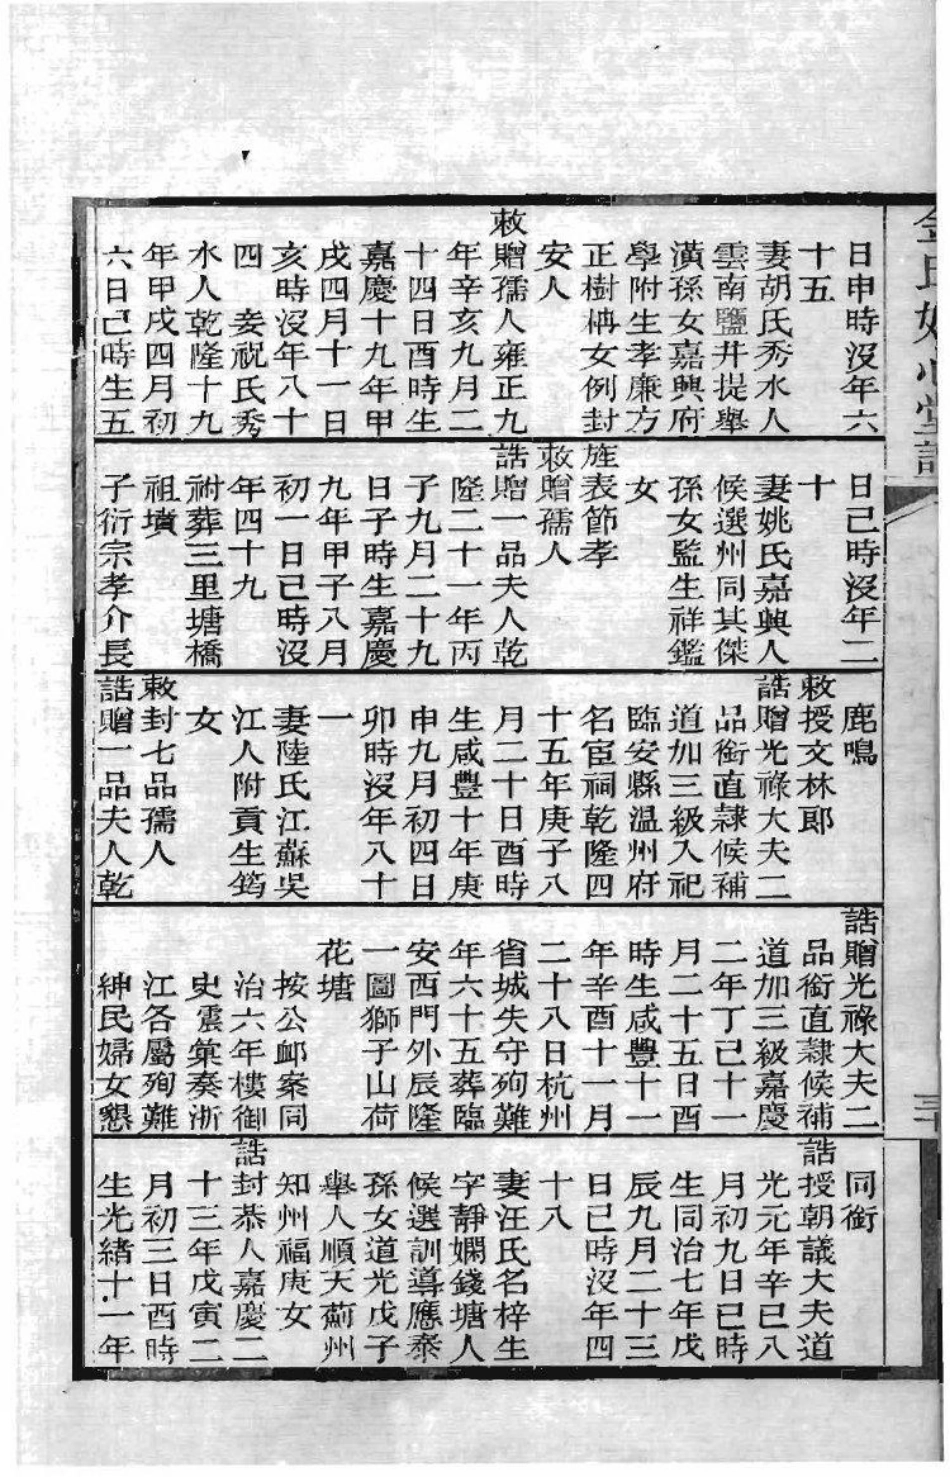 日申時沒年六
十五
妻胡氏秀水人
雲南鹽井提舉
潢孫女嘉興府
學附生孝廉方
正樹楠女例封
安人
敕贈孺人雍正九
年辛亥九月二
十四日酉時生
嘉慶十九年甲
戌四月十一日
亥時沒年八十
四　妾祝氏秀
水人乾隆十九
年甲戌四月初
六日己時生五
日己時沒年二
十
妻姚氏嘉興人
候選州同其傑
孫女監生祥鑑
女
旌表節孝
敕贈孺人
誥贈一品夫人乾
隆二十一年丙
子九月二十九
日子時生嘉慶
九年甲子八月
初一日己時沒
年四十九
祔葬三里塘橋
祖墳
子衍宗孝介長
鹿鳴
敕授文林郎
誥贈光祿大夫二
品銜直隸候補
道加三級入祀
臨安縣溫州府
名宦祠乾隆四
十五年庚子八
月二十日酉時
生咸豐十年庚
申九月初四日
卯時沒年八十
一
妻陸氏江蘇吳
江人附貢生筠
女
敕封七品孺人
誥贈一品夫人乾
誥贈光祿大夫二
品銜直隸候補
道加三級嘉慶
二年丁己十一
月二十五日酉
時生咸豐十一
年辛酉十一月
二十八日杭州
省城失守殉難
年六十五葬臨
安西門外辰隆
一圖獅子山荷
花塘
按公卹案同
治六年樓御
史震彙奏浙
江各屬殉難
紳民婦女懇
同銜
誥授朝議大夫道
光元年辛巳八
月初九日巳時
生同治七年戊
辰九月二十三
日己時沒年四
十八
妻汪氏名梓生
字靜嫻錢塘人
候選訓導應泰
孫女道光戊子
舉人順天薊州
知州福庚女
誥封恭人嘉慶二
十三年戊寅二
月初三日酉時
生光緒十一年